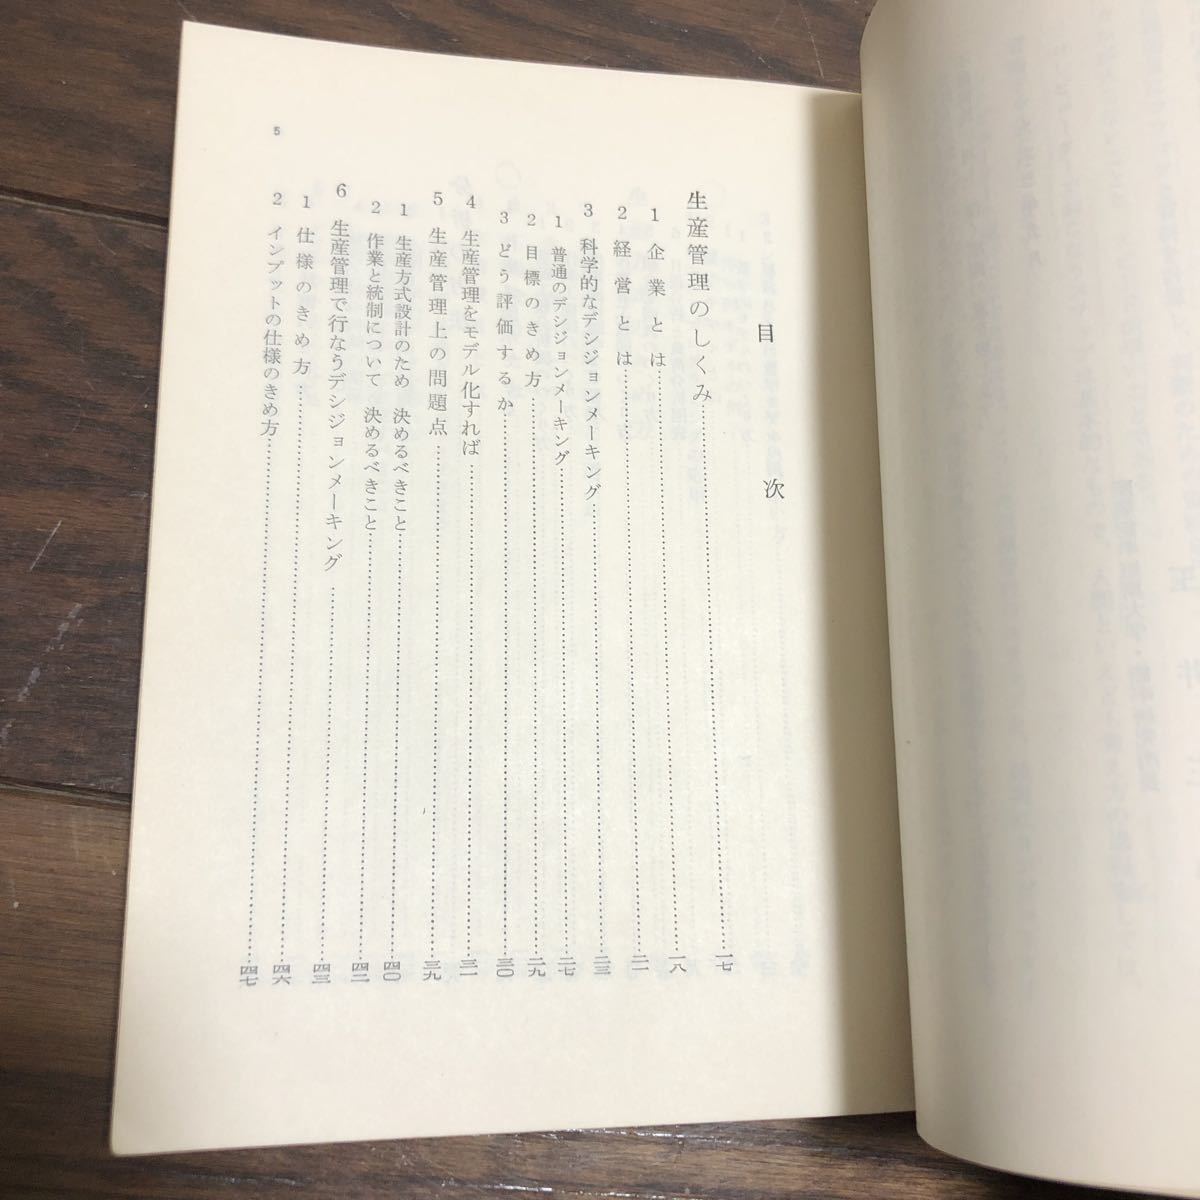 目次
生産管理のしくみ……一七
1 企業とは……一八
2 経営とは……二一
3 科学的なデシジョンメーキング……二三
1 普通のデシジョンメーキング……二七
2 目標のきめ方……二九
3 どう評価するか……三〇
4 生産管理をモデル化すれば……三一
5 生産管理上の問題点……三九
1 生産方式設計のため 決めるべきこと……四〇
2 作業と統制について 決めるべきこと……四二
6 生産管理で行なうデシジョンメーキング……四三
1 仕様のきめ方……四六
2 インプットの仕様のきめ方……四七
5